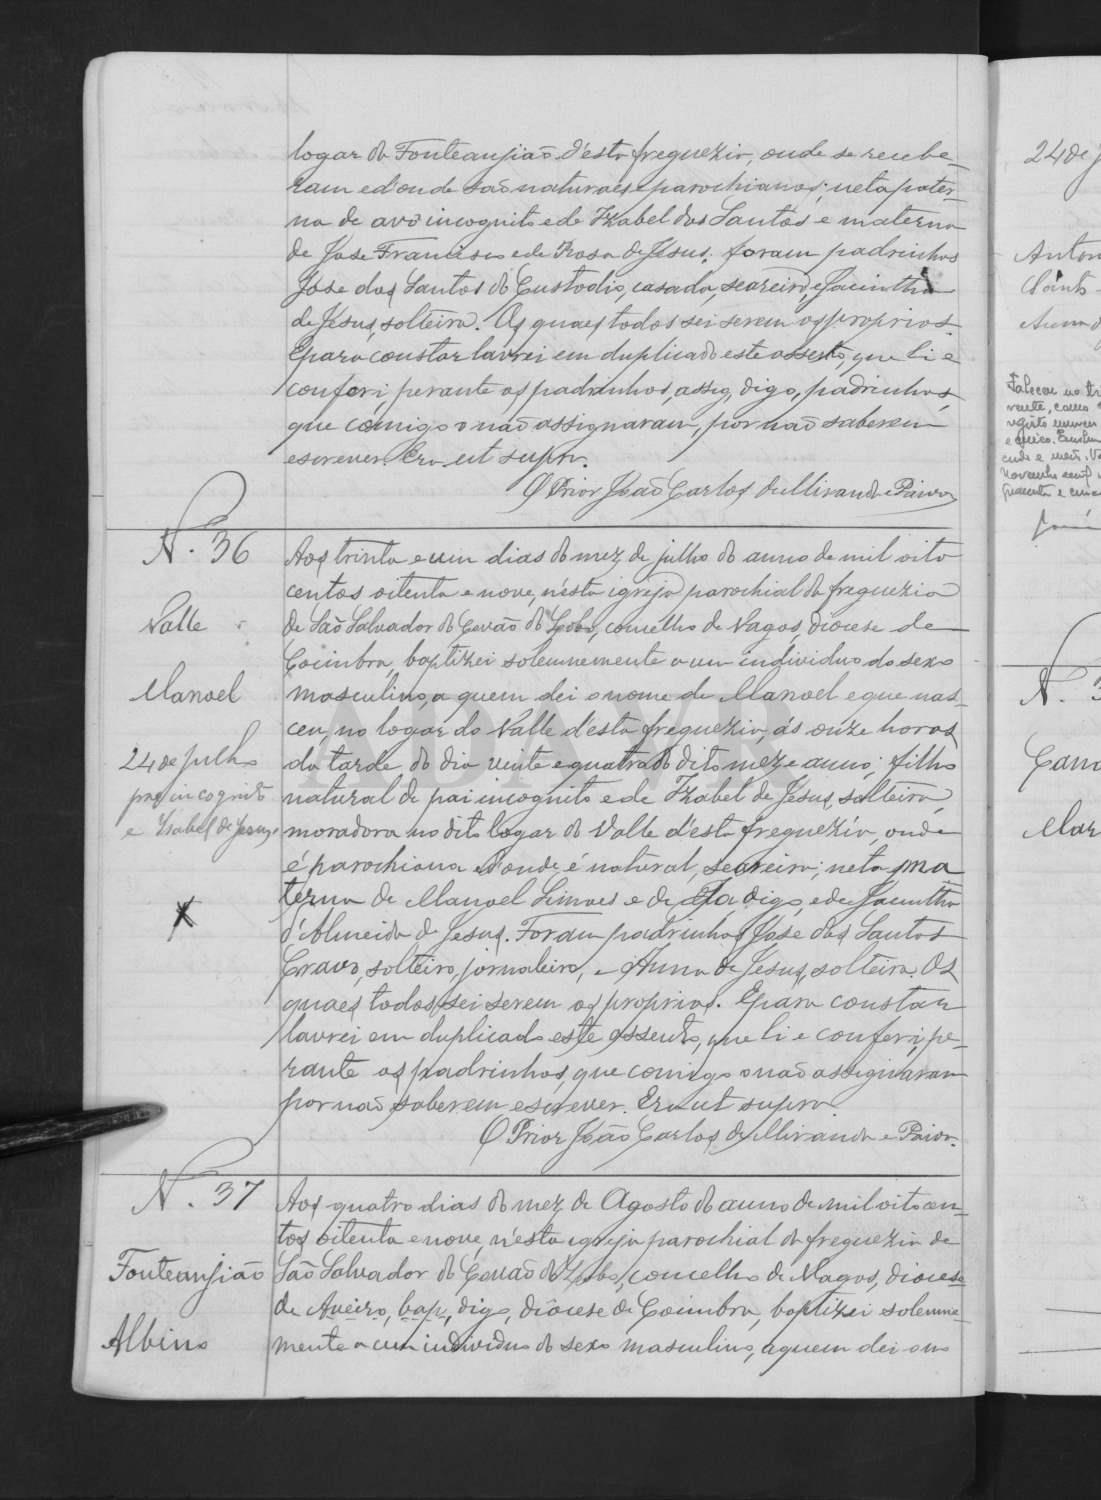 logar da Fonteanjião d'esta freguezia, onde se recebe-
ram e d'onde são naturaes e parochianos; neta pater-
na de avô incognito e de Izabel dos Santos e materna
de José Francisco e de Rosa de Jesus; foram padrinhos
José dos Santos do Custodio, casado, seareiro, e Jacintha
de Jesus, solteira. Os quaes todos sei serem os proprios.
E para constar lavrei em duplicado este assento, que li e
conferi perante os padrinhos, assig, digo, padrinhos
que comigo o não assignaram, por não saberem
escrever. Era ut supra.
O Prior João Carlos de Miranda e Paiva
N. 36
Valle
Manoel
24 de julho
pae incognito
e Isabel de Jesus
Aos trinta e um dias do mez de julho do anno de mil oito
centos oitenta e nove, n'esta igreja parochial da freguezia
de São Salvador do Covão do Lobo, concelho de Vagos, diocese de
Coimbra, baptizei solemnemente a um individuo do sexo
masculino, a quem dei o nome de Manoel e que nas-
ceu, no logar do Valle d'esta freguezia, ás onze horas
da tarde do dia vinte e quatro do dito mez e anno; filho
natural de pai incognito e de Izabel de Jesus, solteira,
moradora no dito logar do Valle d'esta freguezia, onde
é parochiana e d'onde é natural, seareira; neto ma
terno de Manoel Simoes e de digo, e de Jacintha
d'Almeida de Jesus. Foram padrinhos José dos Santos
Cravo, solteiro, jornaleiro, e Anna de Jesus, solteira. Os
quaes todos sei serem os proprios. E para constar
lavrei em duplicado este assento, que li e conferi, pe-
rante os padrinhos, que comigo o não assignaram
por não saberem escrever. Era ut supra.
O Prior João Carlos de Miranda e Paiva.
N. 37
Fonteanjião
Albino
Aos quatro dias do mez de Agosto do anno de mil oitocen-
tos oitenta e nove, n'esta igreja parochial da freguezia de
São Salvador do Covão do Lobo, concelho de Vagos, diocese
de Aveiro, bap, digo, diocese de Coimbra, baptizei solemne-
mente a um individuo do sexo masculino, a quem dei o no
24 de j
Anton
N. 3
Mar
ADAVR